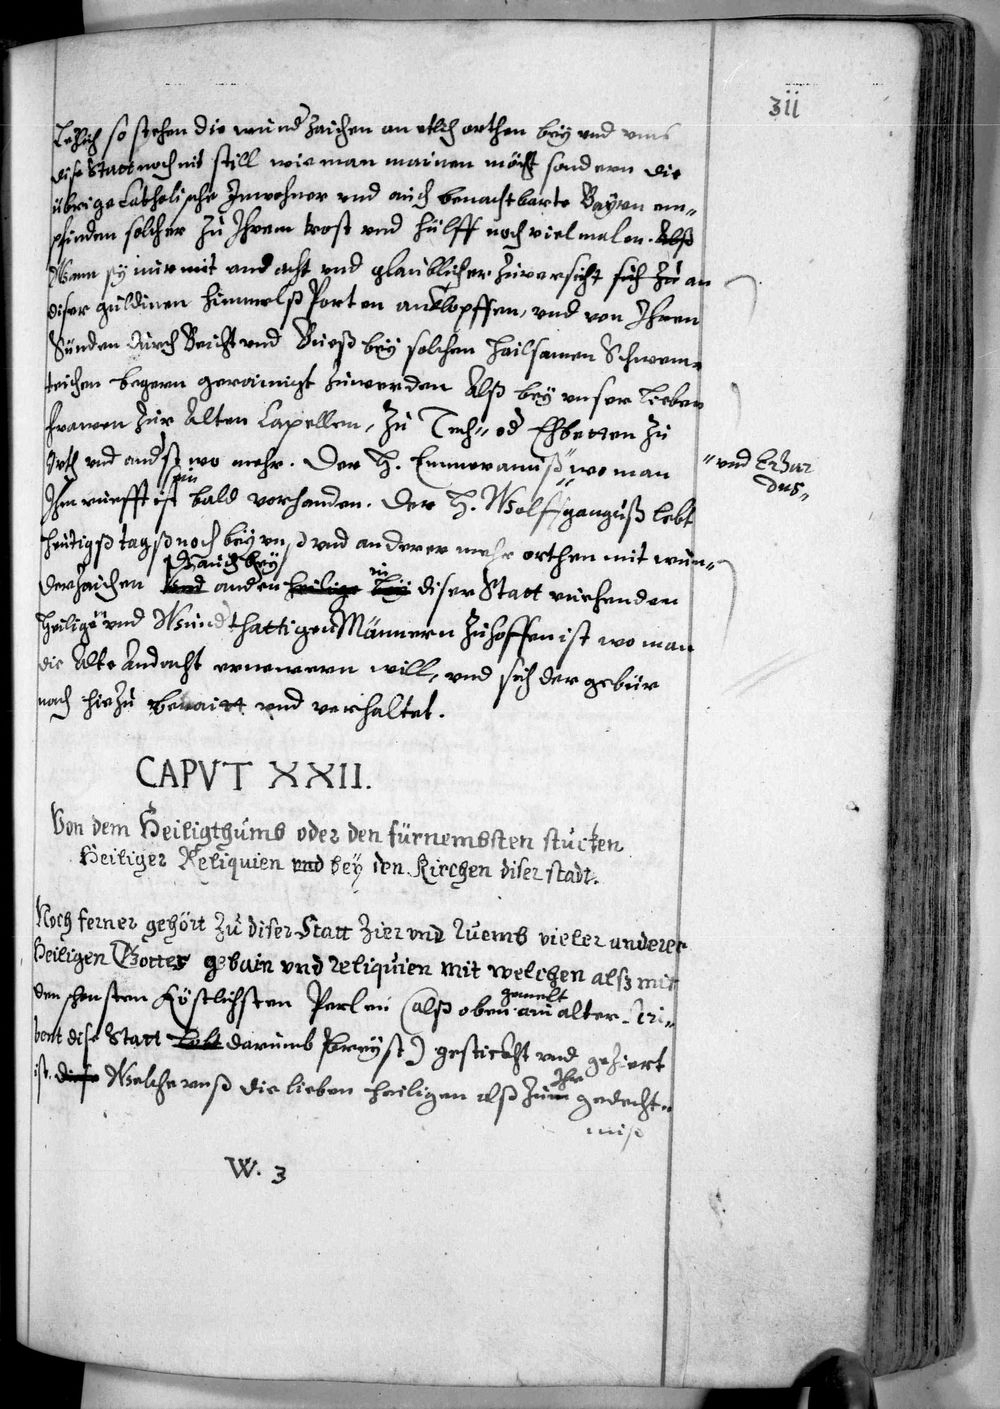 311
Letzlich so stehen die wund Zaichen an etlich orthen bey vnd vmb
dise Statt noch nit still wie man mainen möcht sondern die
übrige Catholische Inwohner vnd auch benachtbarte Bayrn em„
pfinden solcher zu Ihrem trost vnd hülff noch viel malen. Alß
Wann sÿ nur mit andacht vnd glaublicher Zuversicht sich zu an
diser guldinen himmelß Porten anklopffen, vnd von Ihren
Sünden durch Beicht vnd Bueß bey solchen hailsamen Schwem„
teichen begern gerainigt zuwerden Alß bey vnser lieben
frawen zur Alten Capellen, Zu od Zu
Orth vnd anderst wo mehr. Der H. Emmeramuß" wo man
"vnd Erhar
dus„
Ihm rüefft ist sein bald vorhanden. Der H. Wolffganguß lebt
heutigß tagß noch bey vnß vnd anderer mehr orthen mit wun„
derzaichen Vnd D auch bey anden heilige bey in diser Statt ruehenden
heiligen vnd Wundthattigen Männern Zuhoffen ist wo man
die Alte Andacht ernewern will, vnd sich der gebür
nach hiezu beraitt vnd verhaltet.
CAPVT XXII.
Von dem Heiligthumb oder den fürnembsten stucken
Heiliger Reliquien vnd beÿ den Kirchen diser stadt.
Noch ferner gehört Zu diser Statt Zier vnd Ruemb vieler anderer
Heiligen Gottes gebain vnd reliquien mit welchen alß mit
den schensten Köstlichsten Perlen (alß oben gemelt ain alter Scri„
bent dise Statt Lobt darumb Preÿst) gestickht vnd geziert
ist. dise Welche vnß die lieben heiligen alß zum Ihr gedecht„
niß
W. 3